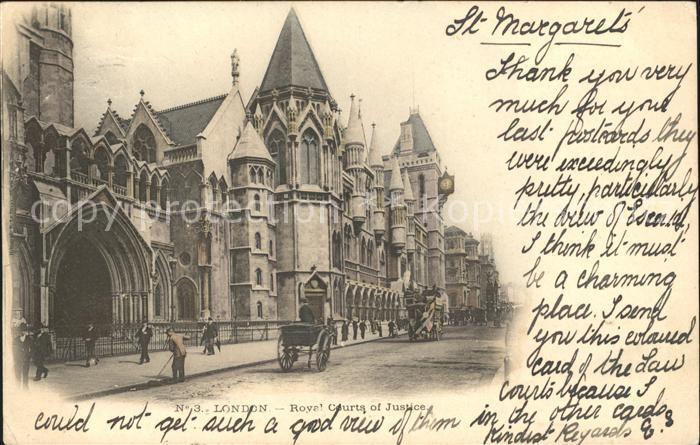 St Margaret's
Thank you very
much for your
last postcards they
were exceedingly
pretty, particularly
the view of
I think it must
be a charming
place. I send
you this coloured
card of the Law
Courts because I
could not get such a good view of them in the other cards
Kindest Regards
No 3. LONDON. - Royal Courts of Justice.
copy protection